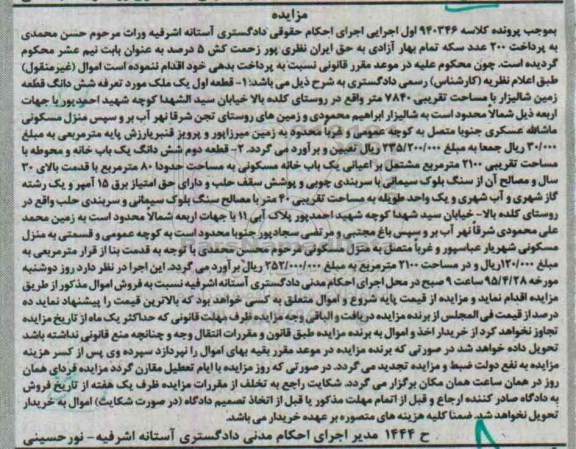 مزایده
بموجب پرونده کلاسه ۹۴۰۳۴۶ اول اجرایی اجرای احکام حقوقی دادگستری آستانه اشرفیه وراث مرحوم حسن محمدی
به پرداخت ۲۰۰ عدد سکه تمام بهار آزادی به حق ایران نظری پور زحمت کش ۵ درصد به عنوان بابت نیم عشر محکوم
گردیده است. چون محکوم علیه در موعد مقرر قانونی نسبت به پرداخت بدهی خود اقدام ننموده است اموال (غیرمنقول)
طبق اعلام نظریه (کارشناس) رسمی دادگستری به شرح ذیل می باشد: ۱- قطعه اول یک ملک مورد تعرفه شش دانگ قطعه
زمین شالیزار با مساحت تقریبی ۷۸۴۰ متر واقع در روستای کلده بالا خیابان سید الشهدا کوچه شهید احمدپور با جهات
اربعه ذیل شمالا محدود است به شالیزار ابراهیم محمودی و زمین های روستای تجن شرقا نهر آب بر و سپس منزل مسکونی
ماشااله عسکری جنوبا متصل به کوچه عمومی و غربا محدود به زمین میرزاپور و پرویز قنبرپارزش پایه مترمربعی به مبلغ
۳۰/۰۰۰ ریال جمعا به مبلغ ۲۳۵/۲۰۰/۰۰۰ ریال تعیین و برآورد می گردد. ۲- قطعه دوم شش دانگ یک باب خانه و محوطه با
مساحت تقریبی ۲۱۰۰ مترمربع مشتمل بر اعیانی یک باب خانه مسکونی به مساحت حدودا ۸۰ مترمربع با قدمت بالای ۳۰
سال و مصالح آن از سنگ بلوک سیمانی با سربندی چوبی و پوشش سقف حلب و دارای حق امتیاز برق ۱۵ آمپر و یک رشته
گاز شهری و آب شهری و یک واحد طویله به مساحت تقریبی ۴۰ متر با مصالح سنگ بلوک سیمانی و سربندی حلب واقع در
روستای کلده بالا- خیابان سید شهدا کوچه شهید احمدپور پلاک آبی ۱۱ با جهات اربعه شمالا محدود است به زمین محمد
علی محمودی شرقا نهر آب بر و سپس باغ مجتبی و مرتضی سجادپور جنوبا محدود است به کوچه عمومی و قسمتی به منزل
مسکونی شهریار عباسپور و غربا متصل به منزل مسکونی مرحوم محسن محمدی با توجه به قدمت بنا از قرار مترمربعی به
مبلغ ۱۲۰/۰۰۰ ریال و در مساحت ۲۱۰۰ مترمربع به مبلغ ۲۵۲/۰۰۰/۰۰۰ ریال برآورد می گردد. این اجرا در نظر دارد روز دوشنبه
مورخه ۹۵/۴/۲۸ ساعت ۹ صبح در محل اجرای احکام مدنی دادگستری آستانه اشرفیه نسبت به فروش اموال مذکور از طریق
مزایده اقدام نماید و مزایده از قیمت پایه شروع و اموال متعلق به کسی خواهد بود که بالاترین قیمت را پیشنهاد نماید ده
درصد از قیمت فی المجلس از برنده مزایده دریافت و الباقی وجه مزایده ظرف مهلت قانونی که حداکثر یک ماه از تاریخ مزایده
تجاوز نخواهد کرد از خریدار اخذ و اموال به برنده مزایده طبق قانون و مقررات انتقال وجه و چنانچه منع قانونی نداشته باشد
تحویل داده خواهد شد در صورتی که برنده مزایده در موعد مقرر بقیه بهای اموال را نپردازد سپرده وی پس از کسر هزینه
مزایده به نفع دولت ضبط و مزایده تجدید می گردد. در صورتی که روز مزایده با ایام تعطیل مقارن گردد مزایده فردای همان
روز در همان ساعت همان مکان برگزار می گردد. شکایت راجع به تخلف از مقررات مزایده ظرف یک هفته از تاریخ فروش
به دادگاه صادر کننده ارجاع و قبل از اتمام مهلت مذکور یا قبل از اتخاذ تصمیم دادگاه (در صورت شکایت) اموال به خریدار
تحویل نخواهد شد. ضمنا کلیه هزینه های متصوره بر عهده خریدار می باشد.
ح ۱۴۴۴ مدیر اجرای احکام مدنی دادگستری آستانه اشرفیه- نورحسینی